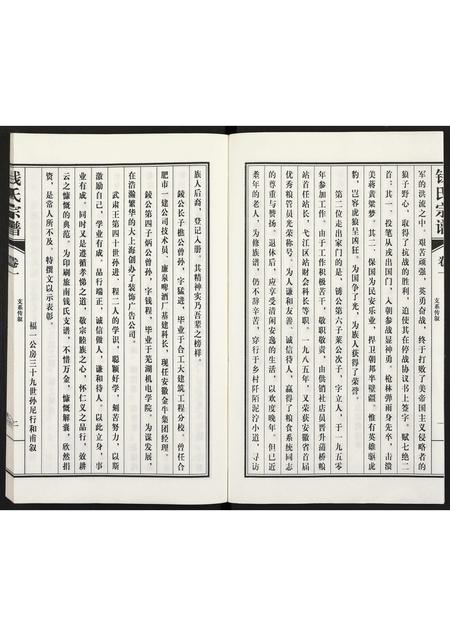 钱氏宗谱
卷一
支系传叙
军的洪流之中，艰苦顽强，英勇奋战，终于打败了美帝国主义侵略者的
狼子野心，取得了抗战的胜利，迫使其在停战协议书上签字。赋七绝二
首：其一，投笔从戎出国门，入朝参战显神勇。枪林弹雨身先卒，击溃
美蒋黄粱梦。其二，保国为民安乐业，捍卫朝邦半壁疆。惟有英雄驱虎
豹，岂容虎狼呈凶狂。为国争了光，为族人获得了荣誉。
第二位走出家门的是，锈公第六子莱公次子，字立人，于一九五零
年参加工作。由于工作积极苦干，敬职敬责，由供销社店员晋升蒲桥粮
站首任站长、弋江区站财会科长等职。一九八五年，又荣获安徽省首届
优秀粮管员光荣称号。为人谦和友善，诚信待人，赢得了粮食系统同志
的尊重与赞扬。退休后，应享受清闲安逸的生活，以欢度晚年。但已近
耄年的老人，为修族谱，仍不辞辛苦，穿行于乡村阡陌泥泞小道，寻访
族人后裔，登记入册。其精神实乃吾辈之榜样。
铙公长子樵公曾孙，字猛进，毕业于合工大建筑工程分校。曾任合
肥市一建公司技术员，廉泉啤酒厂基建科长，现任安徽金牛集团经理。
铙公第四子炳公曾孙，字钱程，毕业于芜湖机电学院。为谋发展，
在浩瀚繁华的大上海创办了装饰广告公司。
武肃王第四十世孙进、程二人的学识，聪颖好学，刻苦努力，以斯
激励自己，学业有成，品行端正，诚信做人，谦和待人，以此立身，事
业有成。同时又是遵循孝悌之道，敬宗睦族之心，怀仁义之品行，效耕
云之慷慨的典范。为印刷旅南钱氏支谱，不惜万金，慷慨解囊，欣然捐
资，是常人所不及，特撰文以示表彰。
福一公房三十九世孙足行和甫叙
钱氏宗谱
卷一
支系传叙